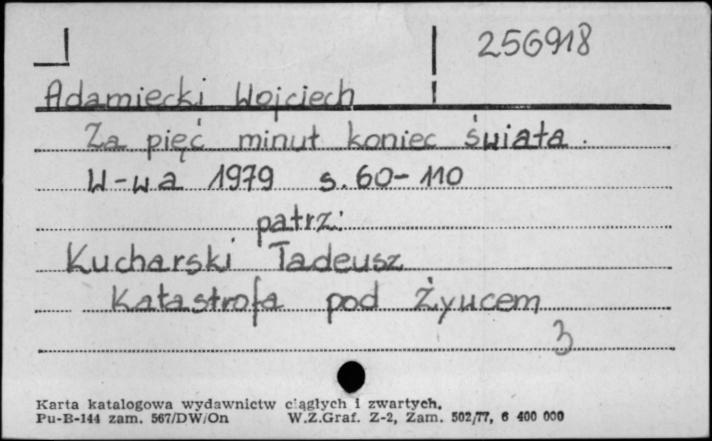 256918
Adamiecki Wojciech
Za pięć minut koniec świata.
W-wa 1979 s. 60-110
patrz:
Kucharski Tadeusz
Katastrofa pod Żywcem
3
Karta katalogowa wydawnictw ciągłych i zwartych.
Pu-B-144 zam. 567/DW/On W.Z.Graf. Z-2, Zam. 502/77, 6 400 000